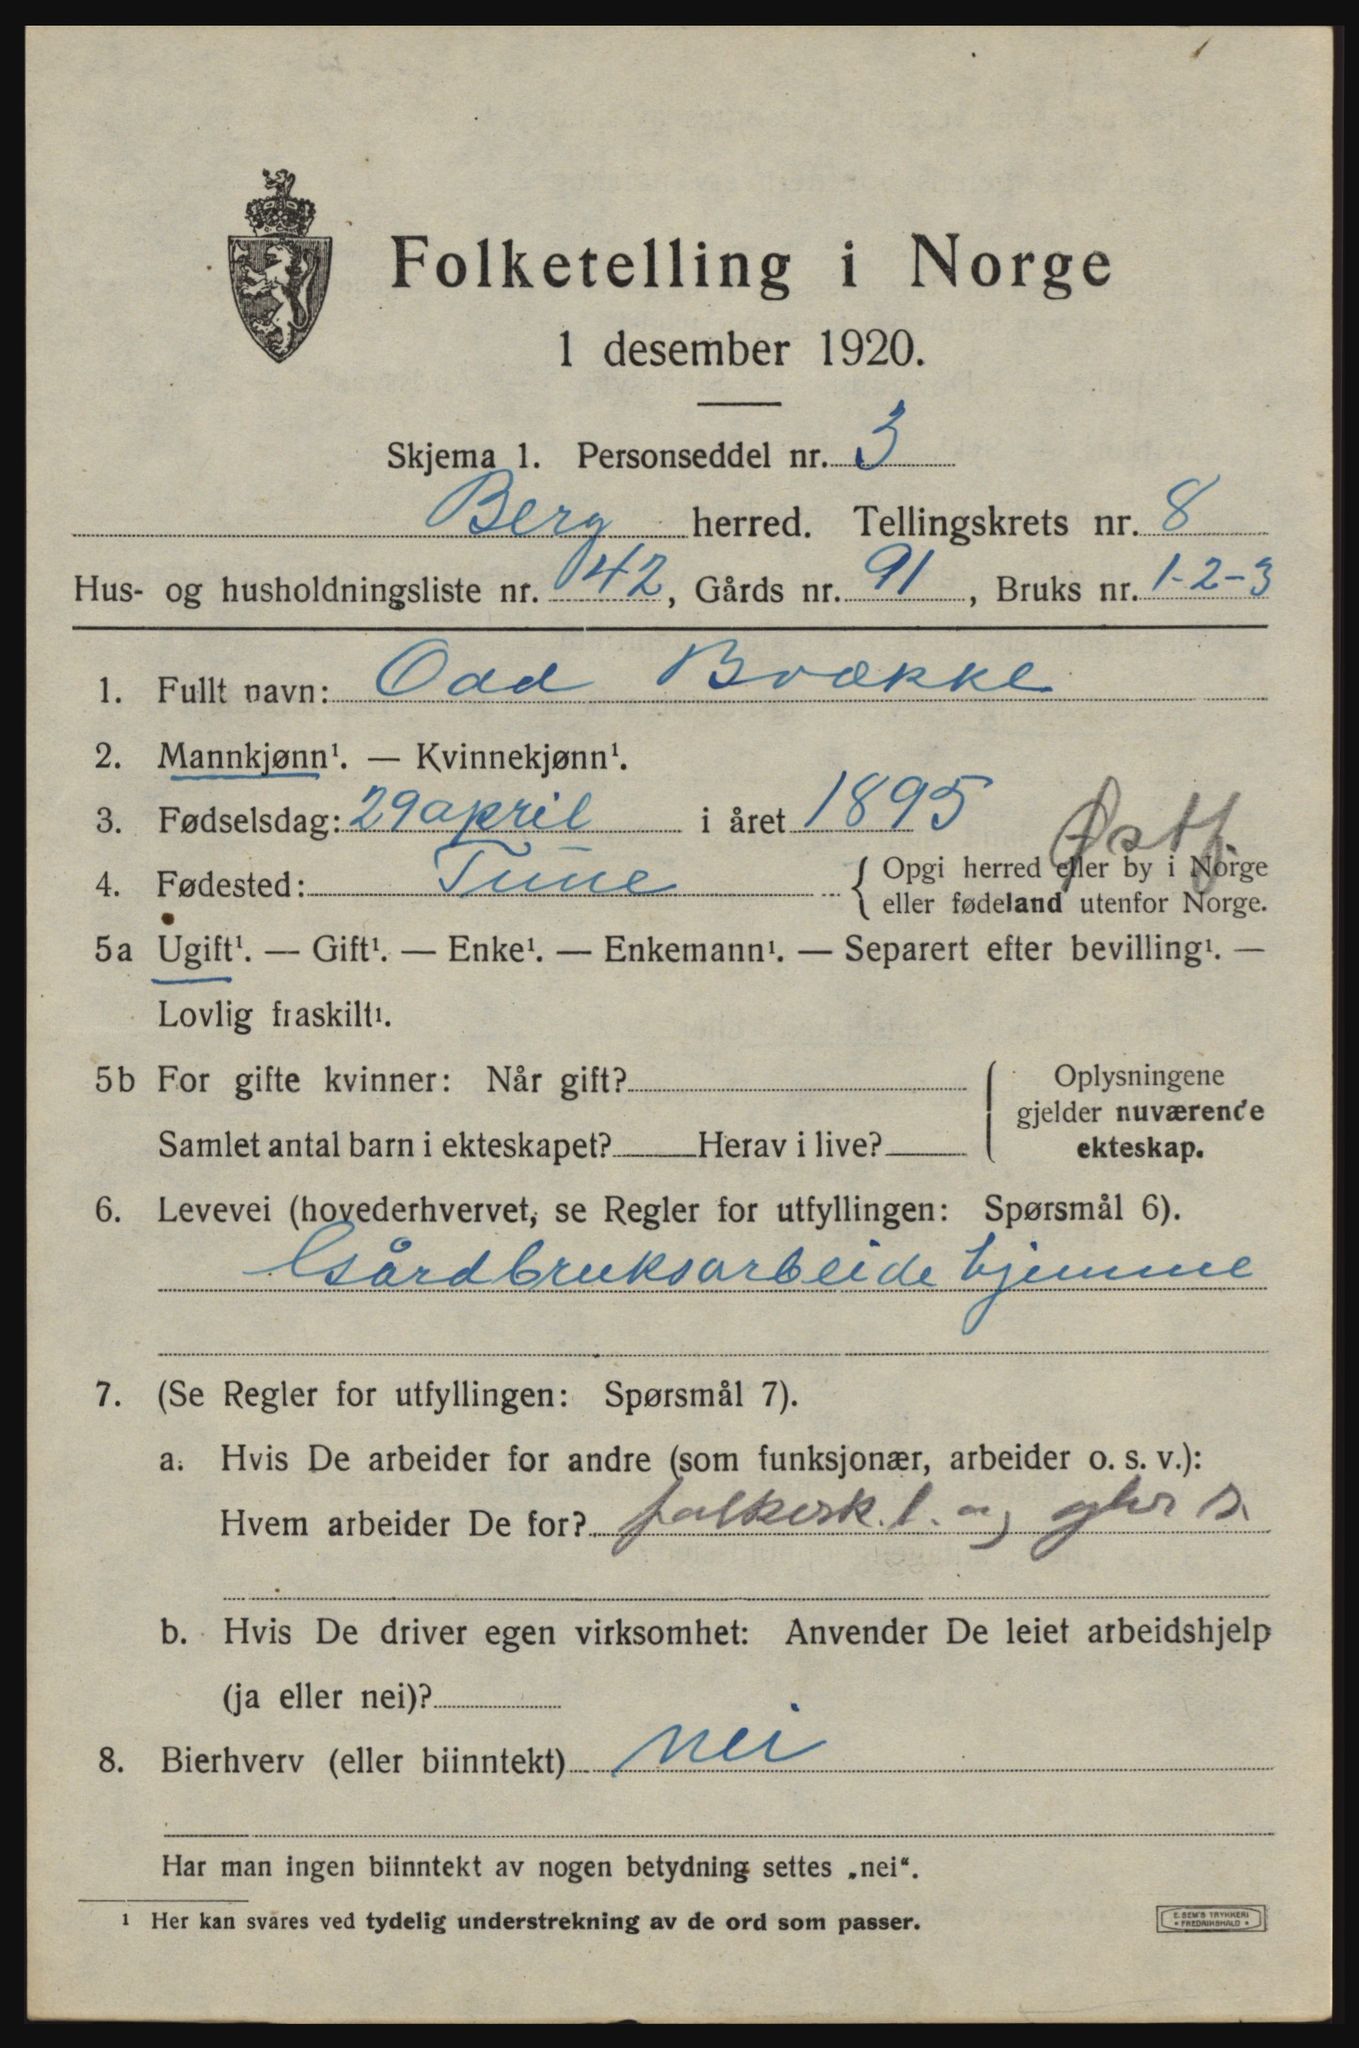 Folketelling i Norge
1 desember 1920.
Skjema 1. Personseddel nr. 3
Berg herred. Tellingskrets nr. 8
Hus- og husholdningsliste nr. 42, Gårds nr. 91, Bruks nr. 1-2-3
1. Fullt navn: Odd Brække
2. Mannkjønn¹. — Kvinnekjønn¹.
3. Fødselsdag: 29 april i året 1895
Østf.
4. Fødested: Tune { Opgi herred eller by i Norge
eller fødeland utenfor Norge.
5a Ugift¹. — Gift¹. — Enke¹. — Enkemann¹. — Separert efter bevilling¹. —
Lovlig fraskilt¹.
5b For gifte kvinner: Når gift?
Samlet antal barn i ekteskapet? Herav i live?
Oplysningene
gjelder nuværende
ekteskap.
6. Levevei (hovederhvervet, se Regler for utfyllingen: Spørsmål 6).
Gårdbruksarbeide hjemme
7. (Se Regler for utfyllingen: Spørsmål 7).
a. Hvis De arbeider for andre (som funksjonær, arbeider o. s. v.):
Hvem arbeider De for? s.
b. Hvis De driver egen virksomhet: Anvender De leiet arbeidshjelp
(ja eller nei)?
8. Bierhverv (eller biinntekt) nei
Har man ingen biinntekt av nogen betydning settes „nei“.
¹ Her kan svares ved tydelig understrekning av de ord som passer.
E. SEM'S TRYKKERI
• FREDRIKSHALD •